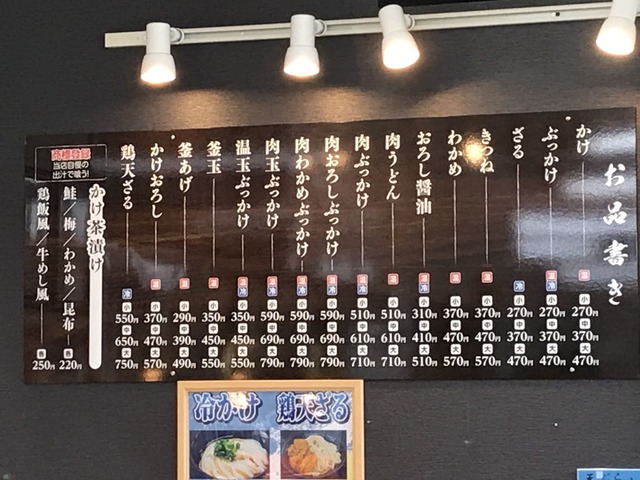 お品書き
かけ 温 小 270円 中 370円 大 470円
ぶっかけ 温 冷 小 270円 中 370円 大 470円
ざる 冷 小 270円 中 370円 大 470円
きつね 温 小 370円 中 470円 大 570円
わかめ 温 小 370円 中 470円 大 570円
おろし醤油 温 冷 小 310円 中 410円 大 510円
肉うどん 温 小 510円 中 610円 大 710円
肉ぶっかけ 温 冷 小 510円 中 610円 大 710円
肉おろしぶっかけ 温 冷 小 590円 中 690円 大 790円
肉わかめぶっかけ 温 冷 小 590円 中 690円 大 790円
肉玉ぶっかけ 温 冷 小 590円 中 690円 大 790円
温玉ぶっかけ 温 冷 小 350円 中 450円 大 550円
釜玉 温 小 350円 中 450円 大 550円
釜あげ 温 小 290円 中 390円 大 490円
かけおろし 温 小 370円 中 470円 大 570円
鶏天ざる 冷 小 550円 中 650円 大 750円
商標登録
当店自慢の
出汁で喰う!
かけ茶漬け
鮭/梅/わかめ/昆布 220円
鶏飯風/牛めし風 250円
冷かけ
鶏天ざる